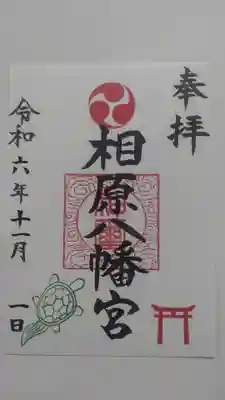 奉拝
相原八幡宮
令和六年十一月 一日